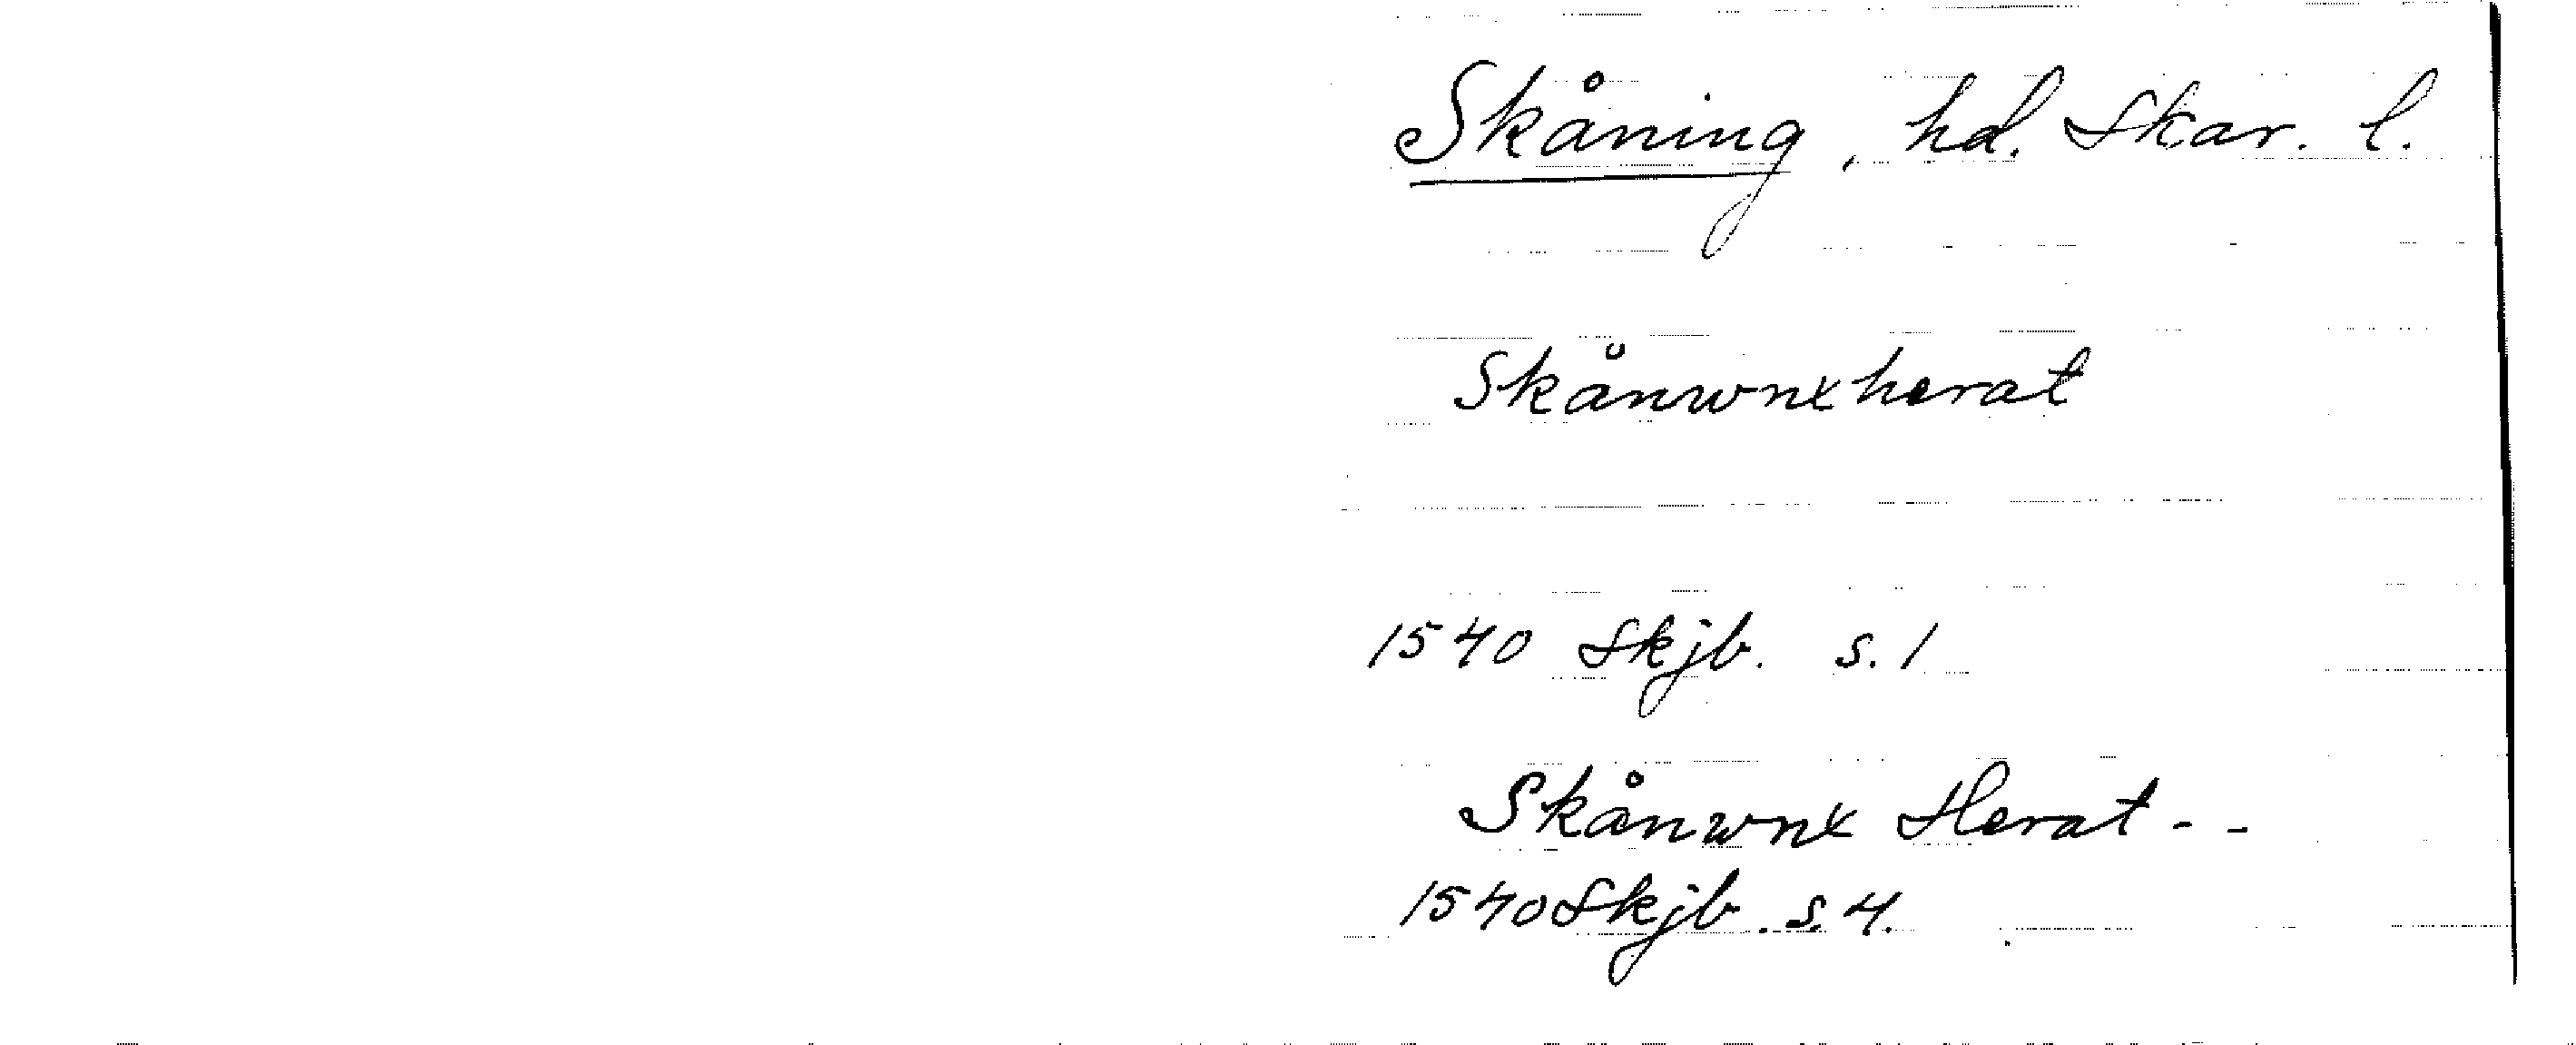 Skåning, hd. Skar. l.
Skånwnxherat
1540 Skjb. s. 1
Skånwnx Herat - -
1540 Skjb. s. 4.